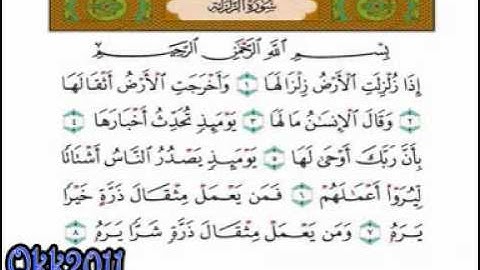 سُورَةُ الزَّلْزَلَةِ
بِسْمِ اللَّهِ الرَّحْمَٰنِ الرَّحِيمِ
إِذَا زُلْزِلَتِ الْأَرْضُ زِلْزَالَهَا ١ وَأَخْرَجَتِ الْأَرْضُ أَثْقَالَهَا
٢ وَقَالَ الْإِنسَانُ مَا لَهَا ٣ يَوْمَئِذٍ تُحَدِّثُ أَخْبَارَهَا ٤
بِأَنَّ رَبَّكَ أَوْحَىٰ لَهَا ٥ يَوْمَئِذٍ يَصْدُرُ النَّاسُ أَشْتَاتًا
لِّيُرَوْا أَعْمَالَهُمْ ٦ فَمَن يَعْمَلْ مِثْقَالَ ذَرَّةٍ خَيْرًا
يَرَهُ ٧ وَمَن يَعْمَلْ مِثْقَالَ ذَرَّةٍ شَرًّا يَرَهُ ٨
Okk2011